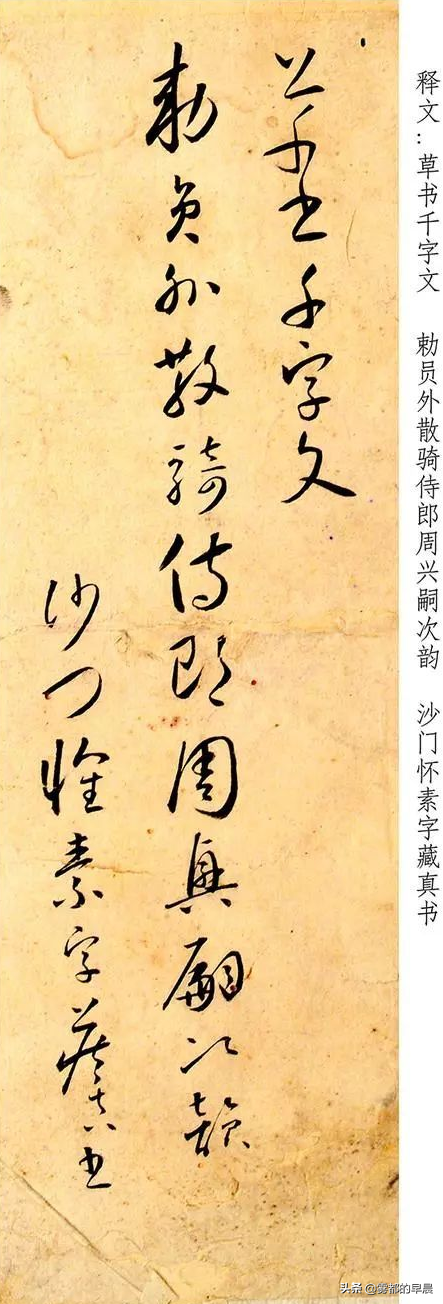 释文：草书千字文 勅员外散骑侍郎周兴嗣次韵 沙门怀素字藏真书
草書千字文
勅員外散騎侍郎周興嗣次韻
沙門懷素字藏真書
头条 @雾都的早晨